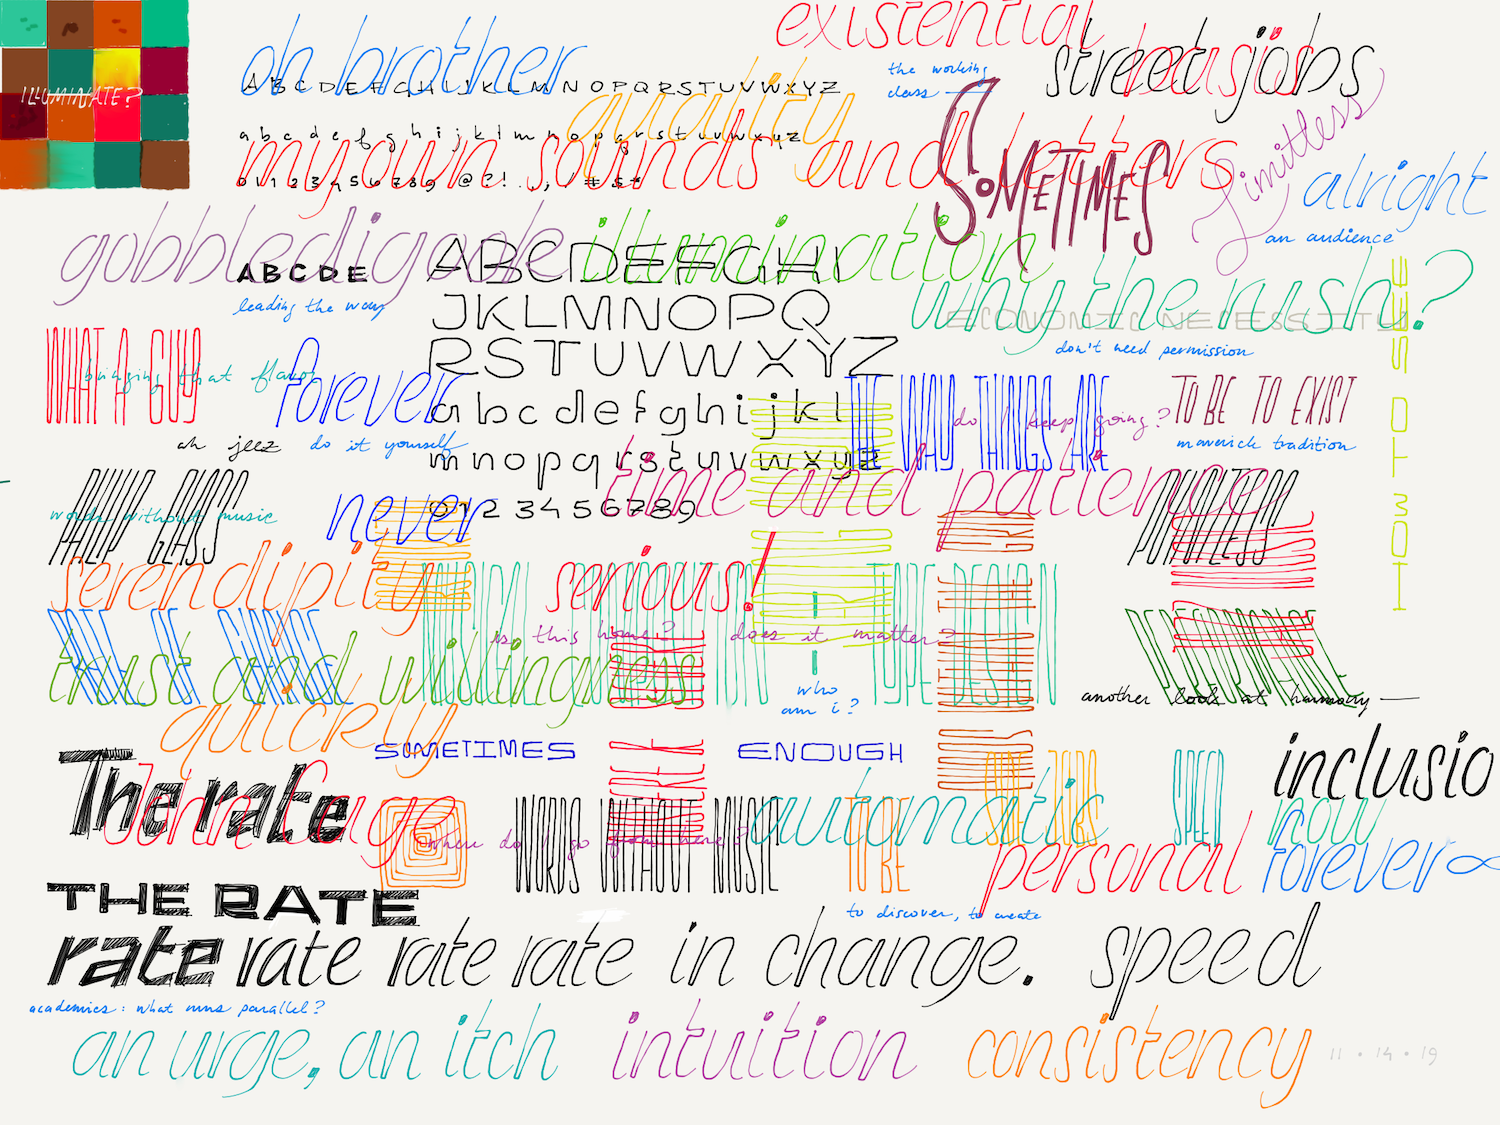 existential
oh brother
street jobs
the working
class
ILLUMINATE?
A B C D E F G H I J K L M N O P Q R S T U V W X Y Z
quality
limitless
a b c d e f g h i j k l m n o p q r s t u v w x y z
my own sounds and letters
0 1 2 3 4 5 6 7 8 9 @ ? ! . , ; ' # $ *
SOMETIMES
alright
an audience
gobbledigook
illumination
ABCDE
ABCDEFGHI
JKLMNOPQ
RSTUVWXYZ
leading the way
why the rush?
ECONOMIC NECESSITY
don't need permission
WHAT A GUY
bringing that flavor
forever
abcdefghijkl
THE WAY THINGS ARE
do I keep going?
TO BE TO EXIST
maverick tradition
ah jeez
do it yourself
mnopqrstuvwxyz
time and patience
PHILIP GLASS
words without music
never
0123456789
POINTLESS
serendipity
serious!
MUSICAL COMPOSITION
TYPE DESIGN
is this home?
does it matter?
trust and willingness
who
am i?
another look at harmony
quickly
SOMETIMES
ENOUGH
The rate
John Cage
where do I go from here?
WORDS WITHOUT MUSIC
automatic
TO BE
SPEED
inclusio
now
personal
forever ∞
THE RATE
to discover, to create
rate rate rate rate in change. speed
academics: what runs parallel?
an urge, an itch
intuition
consistency
11 • 14 • 19